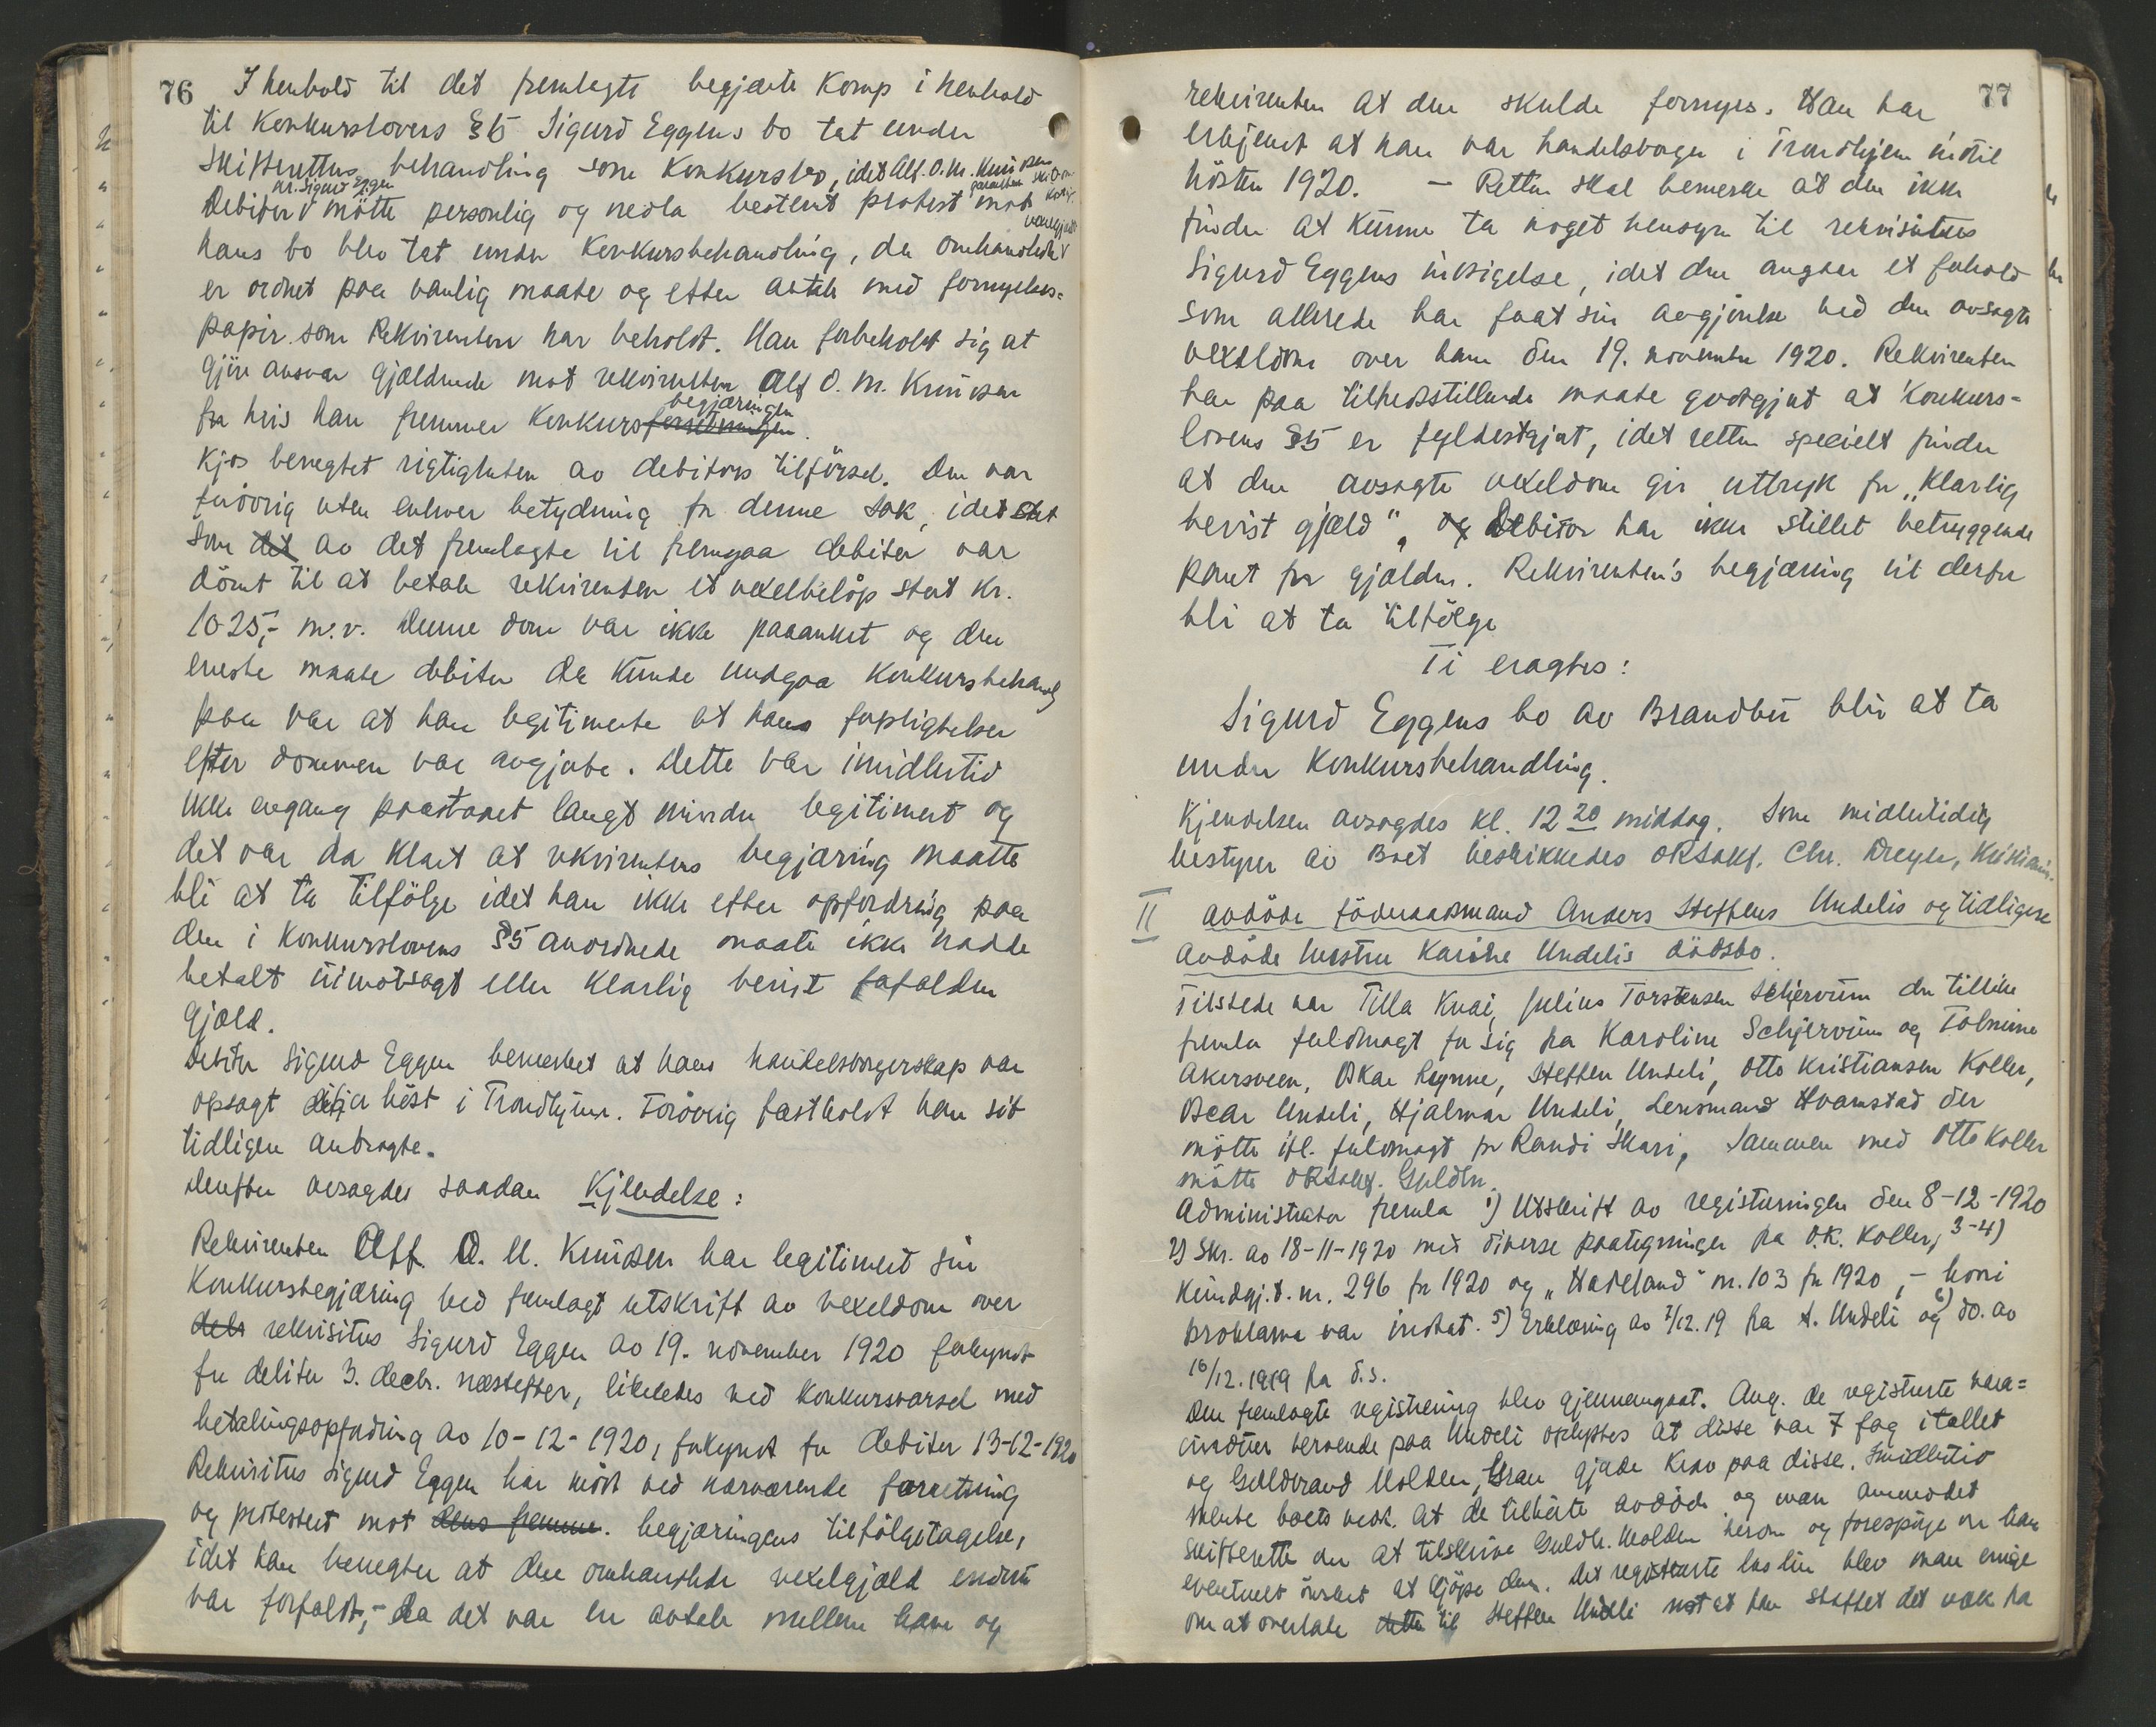 76
I henhold til det fremlagte begjærte Komp i henhold
til Konkurslovens § 5 Sigurd Eggens bo tat under
Skifterettens behandling som Konkursbo, idet Alf. O. M. Knudsen
Debitor hr. Sigurd Eggen mötte personlig og nedla bestemt protest mot
hans bo blev tat under Konkursbehandling, da omhandlede vexelgjæld
er ordnet paa vanlig maate og efter avtale med fornyelses-
papir som Rekvirenten har beholdt. Han forbeholdt sig at
gjöre ansvar gjældende mot rekvirenten Alf O. M. Knudsen
for hvis han fremmer Konkursbegjæringen.
Kjos benegtet rigtigheten av debitors tilförsel. Den var
forövrig uten enhver betydning for denne sak, idet det
som av det fremlagte vil fremgaa debitor var
dömt til at betale rekvirenten et vexelbelöp stort kr.
1025,- m.v. Denne dom var ikke paaanket og den
eneste maate debitor da kunde undgaa Konkursbehandl
paa var at han legitimerte at hans forpligtelser
efter dommen var avgjorte. Dette var imidlertid
ikke engang paastaaet langt mindre legitimert og
det var da klart at rekvirentens begjæring maatte
bli at ta tilfölge idet han ikke efter opfordring paa
den i Konkurslovens § 5 anordnede maate ikke hadde
betalt uimotsagt eller klarlig bevist forfalden
gjæld.
Debitor Sigurd Eggen bemerket at hans handelsborgerskap var
opsagt ifjor höst i Trondhjem. Forövrig fastholdt han sit
tidligere anbragte.
Derefter avsagdes saadan Kjendelse:
Rekvirenten Alf. O. M. Knudsen har legitimert sin
Konkursbegjæring ved fremlagt utskrift av vexeldom over
rekvisitus Sigurd Eggen av 19. november 1920 forkyndt
for debitor 3. decbr. næstefter, likeledes ved Konkursvarsel med
betalingsopfordring av 10-12-1920, forkyndt for debitor 13-12-1920
Rekvisitus Sigurd Eggen har mött ved nærværende forretning
og protestert mot dens fremme. begjæringens tilfölgetagelse,
idet han benegter at den omhandlede vexelgjæld endnu
var forfaldt, - da det var en avtale mellem ham og
77
rekvirenten at den skulde fornyes. Han har
erkjendt at han var handelsborger i Trondhjem indtil
hösten 1920. - Retten skal bemerke at den ikke
finder at kunne ta noget hensyn til rekvisitus
Sigurd Eggens indsigelse, idet den angaar et forhold
som allerede har faat sin avgjörelse ved den avsagte
vexeldom over ham den 19. november 1920. Rekvirenten
har paa tilfredsstillende maate godtgjort at Konkurs-
lovens § 5 er fyldestgjort, idet retten specielt finder
at den avsagte vexeldom gir uttryk for "klarlig
bevist gjæld", og Debitor har ikke stillet betryggende
pant for gjælden. Rekvirenten's begjæring vil derfor
bli at ta tilfölge
Ti eragtes:
Sigurd Eggens bo av Brandbu blir at ta
under Konkursbehandling.
Kjendelsen avsagdes kl. 12 20 middag. Som midlertidig
bestyrer av Boet beskikkedes ORSakf. Chr. Dreyer, Kristiania.
II avdöde föderaadsmand Anders Steffens Undelis og tidligere
avdöde hustru Karine Undelis dödsbo.
Tilstede var Tilla Kvai, Julius Torstensen Schjervum der tillike
fremla fuldmagt for sig fra Karoline Schjervum og Tolmine
Akersveen, Oskar Rynne, Steffen Undeli, Otto Kristiansen Koller,
Oscar Undeli, Hjalmar Undeli, Lensmand Hvamstad der
mötte ifl. fuldmagt for Randi Skari, Sammen med Otto Koller
mötte ORSakf. Gulden.
Administrator fremla 1) Utskrift av registreringen den 8-12-1920
2) Skr. av 18-11-1920 med diverse paategninger fra O.K. Koller, 3-4)
Kundgj.t. nr. 296 for 1920 og "Hadeland" nr. 103 for 1920, - hvori
proklama var indtat. 5) Erklæring av 7/12.19 fra A. Undeli og 6) do. av
16/12.1919 fra d.s.
Den fremlagte registrering blev gjennemgaat. Ang. de registrerte vara=
vinduer beroende paa Undeli oplystes at disse var 7 fag i tallet
og Guldbrand Molden, Gran gjorde krav paa disse. Imidlertid
mente boets vedk. at de tilhörte avdöde og man anmodet
skifteretten om at tilskrive Guldb. Molden herom og forespörge om han
eventuelt önsket at kjöpe dem. Det registrerte las lin blev man enige
om at overlate dette til Steffen Undeli mot at han skaffet det væk fra